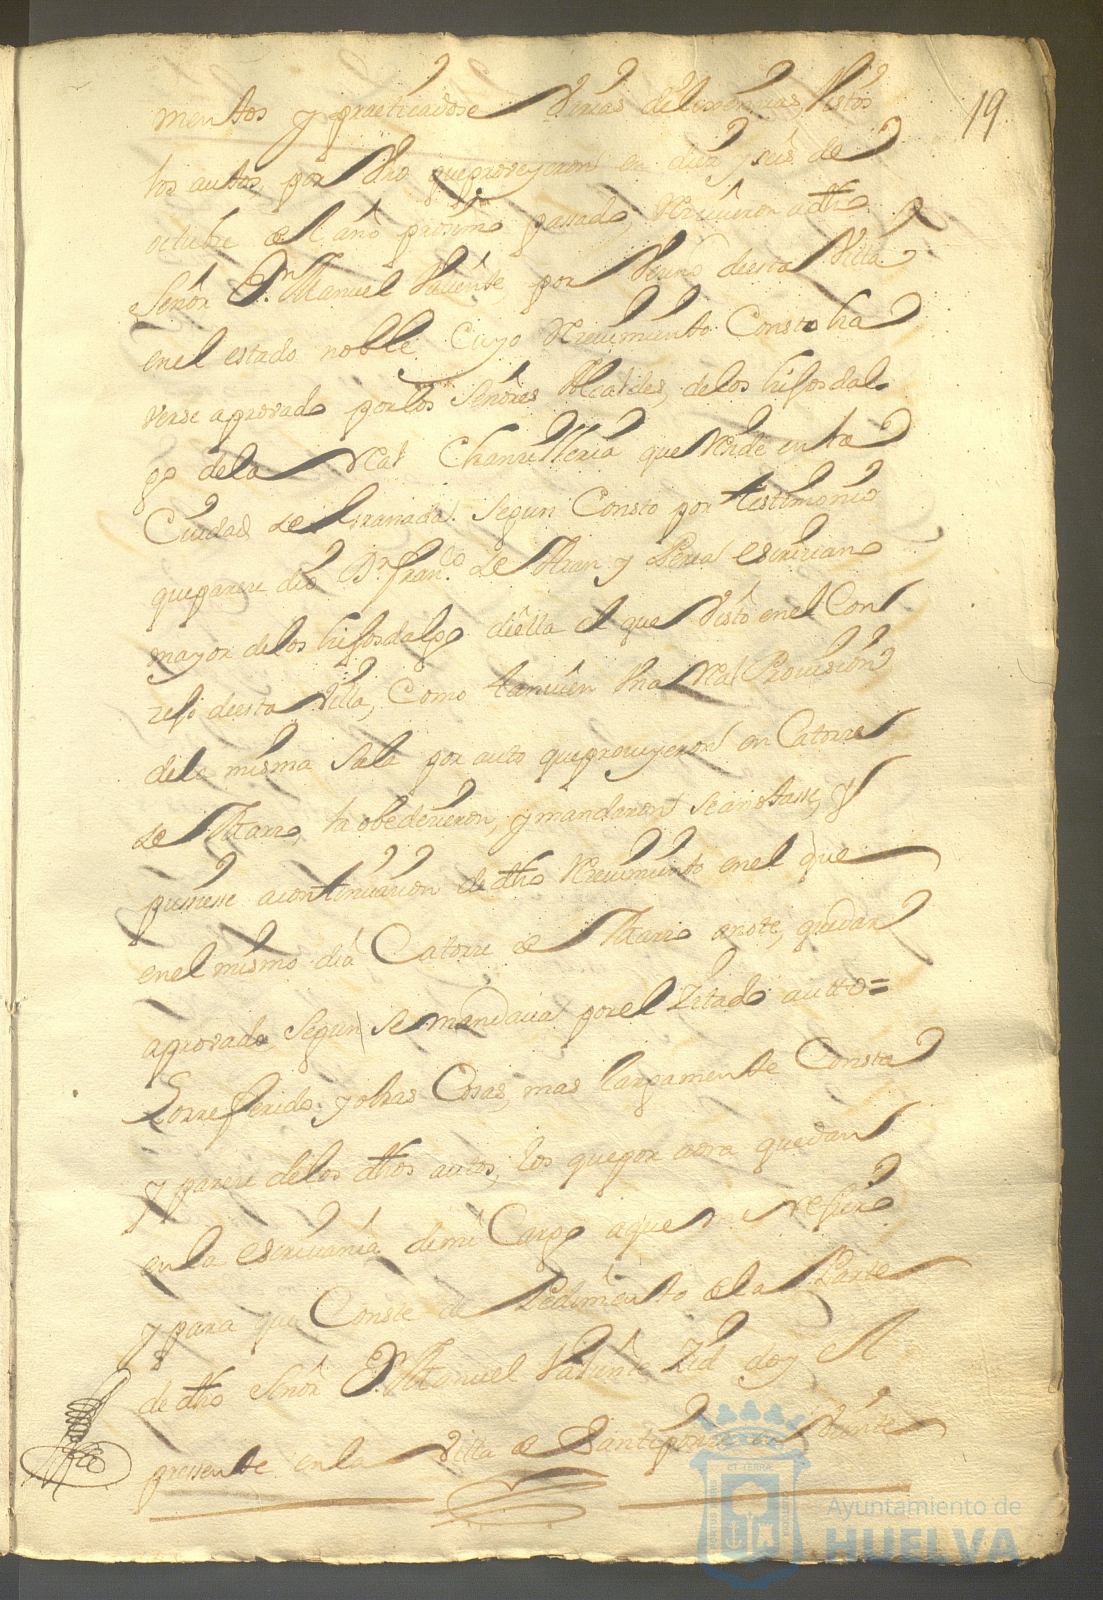 19
mentos y practicadose varias delixencias, Vistos
los autos por dho que proveyeron en diez y seis de
octubre del año proximo passado, Recivieron a dho
Señor Dn Manuel Valiente, por Vezino desta Villa
en el estado noble, Cuyo Recivimiento Consto ha
verse aprovado por los Señores Alcaldes, de los hijosdal
go de la Real Chanzilleria que Reside en la
Ciudad de Granada. Segun Consto por testimonio
que parece dio Dn Franco de y escrivano
mayor de los hijosdalgo della el que Visto en el Con
zejo desta Villa, Como tanvien Una Real Provision
dela misma Sala por auto que proveyeron en Catorze
de Marzo, la obedezieron, y mandaron se anotasse, y
pusiesse a continuazion de dho Recivimiento en el que
en el mismo dia Catorze de Marzo anote, quedar
aprovado Segun se mandava por el Zitado autto=
Lo rreferido y otras Cosas, mas largamente Consta
y parece de los dhos autos, los que por aora quedan
en la escrivania de mi Cargo a que me refiero
y para que Conste de Pedimento de la Parte
de dho Señor Dn Manuel Valiente Zed doy el
pressente en la Villa de Santiponze en Veinte
Ayuntamiento de
HUELVA